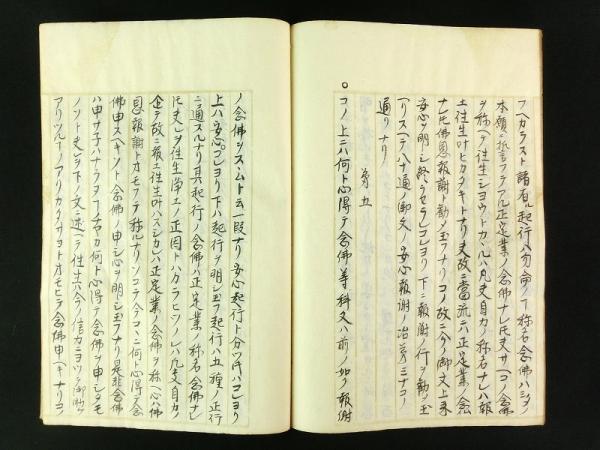 フヘカラスト諸有ル起行ハ勿論ノ〻称名念佛ハシタノ
本願ニ誓言フテアル正定業ノ念佛ナレ𪜈夫サヘコノ念佛
ヲ称ヘテ往生シヨウトカヽルハ凡夫自力ノ称名ナレハ報
土往生叶ヒカタキトナリ夫故ニ當流テハ正定業ノ念
ナレ𪜈佛恩報謝ト勧メ玉フナリコノ故ニ今ノ御文上来
安心ヲ明シ終ラセラレコレヨリ下ニ報謝ノ行ヲ勧メ玉
ヘリスヘテ八十通ノ御文ノ安心報謝ノ
通リナリ
第五
コノ上ニハ何ト心得テ念佛等科文ハ前ノ如ク報謝
ノ念佛ヲスヽムト云一段ナリ安心起行ト分ツ𪜈ハコレヨリ
上ハ安心コレヨリ下ハ起行ヲ明シ玉フ起行ハ五種ノ正行
ニ通スルナリ其起行ノ念佛ハ正定業ノ称名念佛ナレ
𪜈夫レヲ往生浄土ノ正因トハカラヒツノレハ凡夫自力ノ
企テ故ニ報土往生叶ハスシカレハ正定業ノ念佛ヲ称ヘ心ハ佛
恩報謝トオモフテ称ルナリソコテ今コヽニ何ト心得テ念
佛申スヘキソト念佛ノ申シ心ヲ明シ玉フナリ是非念佛
ハ申サ子ハナラヌフチヤカ何ト心得テ念佛ヲ申シタモ
ノソト夫レヲ下ノ文ニ述ヘテ往生ハ今ノ信力ニヨリテ御助ケ
アリツルフノアリカタサヨトオモヒテ念佛申ヘキナリコ